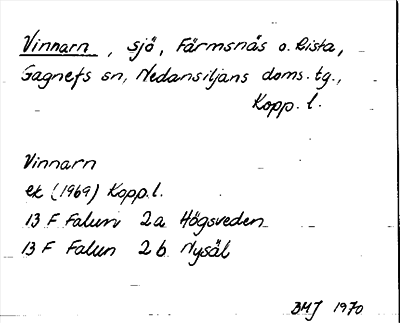 Vinnarn, sjö, Färmsnäs o. Lista,
Gagnefs sn, Nedansiljans doms. tg.,
Kopp. l.
Vinnarn
ek (1969) Kopp.l.
13 F Falun 2a Högsveden
13 F Falun 2b Nysäl
BMJ 1970